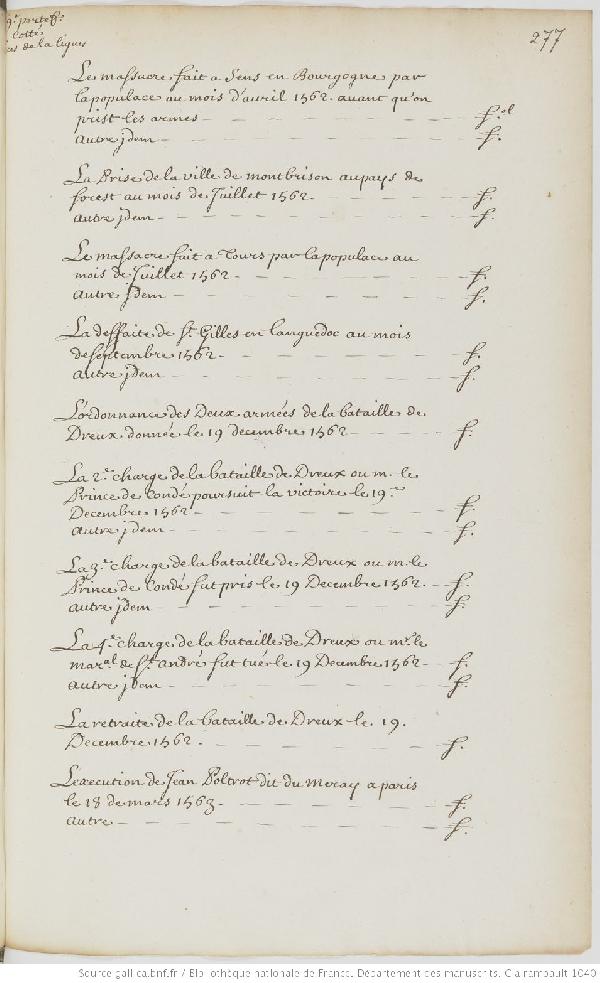 9e. portef.
cotté
de la ligue
277
Le massacre fait a Sens en Bourgogne par
la populace au mois d'avril 1562. avant qu'on
prist les armes — f.ol
autre jdem — f.
La Prise de la ville de montbrison au pays de
forest au mois de Juillet 1562. — f.
autre jdem — f.
Le massacre fait a Tours par la populace au
mois de Juillet 1562 — f.
autre jdem — f.
La deffaite de St. Gilles en languedoc au mois
de septembre 1562 — f.
autre jdem — f.
L'ordonnance des Deux armées de la bataille de
Dreux donnée le 19 decembre 1562 — f.
La 2.e charge de la bataille de Dreux ou m. le
Prince de Condé poursuit la victoire le 19.
Decembre 1562 — f.
autre jdem — f.
La 3.e charge de la bataille de Dreux ou m. le
Prince de Condé fut pris le 19 Decembre 1562. — f.
autre jdem — f.
La 4.e charge de la bataille de Dreux ou mr. le
mar.al de St. André fut tué le 19 Decembre 1562 — f.
autre jdem — f.
La retraite de la bataille de Dreux le 19.
Decembre 1562. — f.
L'execution de Jean Poltrot dit du meray a paris
le 18 de mars 1563 — f.
autre — f.
Source gallica.bnf.fr / Bibliothèque nationale de France. Département des manuscrits. Clairambault 1040